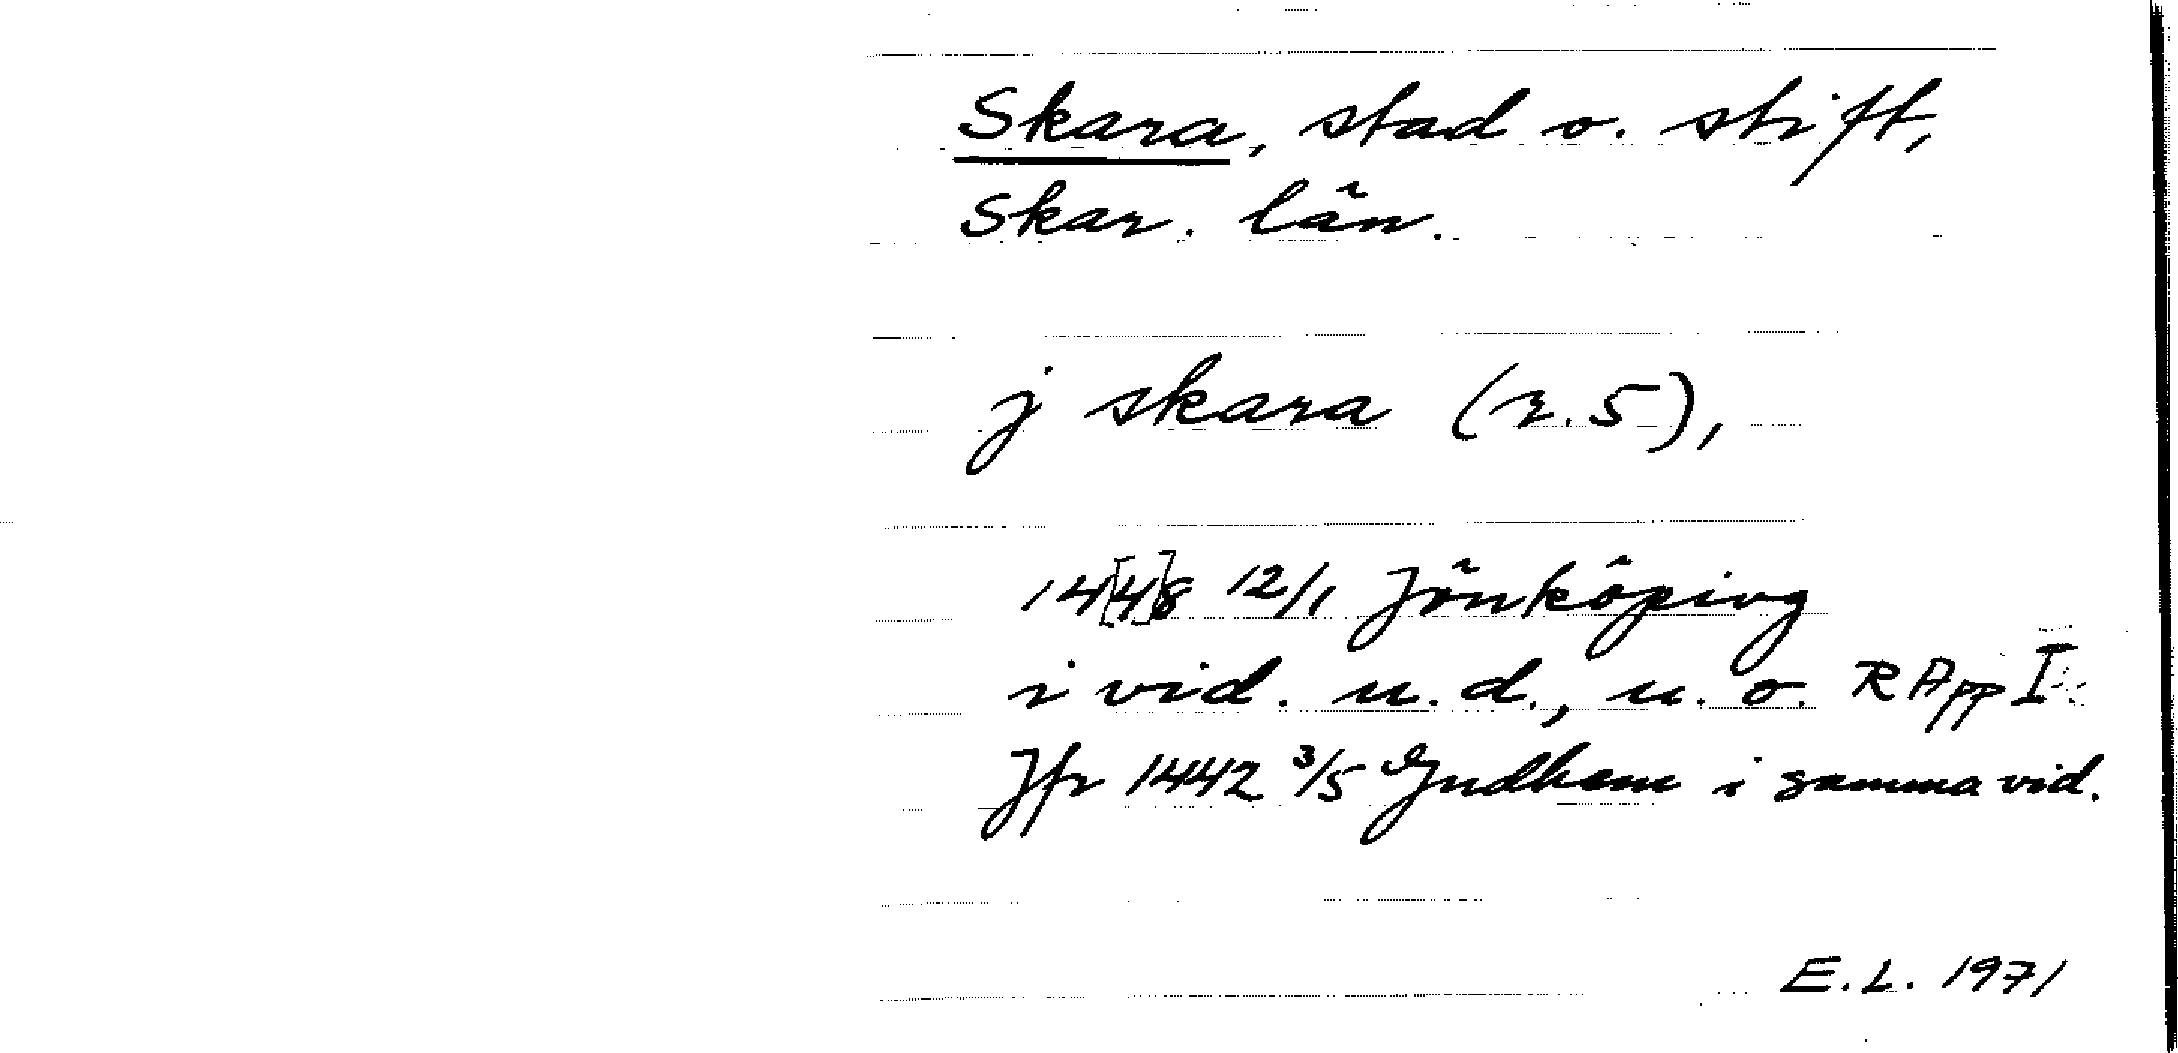 Skara, stad o. stift,
Skar. län.
j skara (r.5),
14[4]8 12/1 Jönköping
i vid. u.d., u.o. RApp I
Jfr 1442 3/5 Gudhem i samma vid.
E.L. 1971